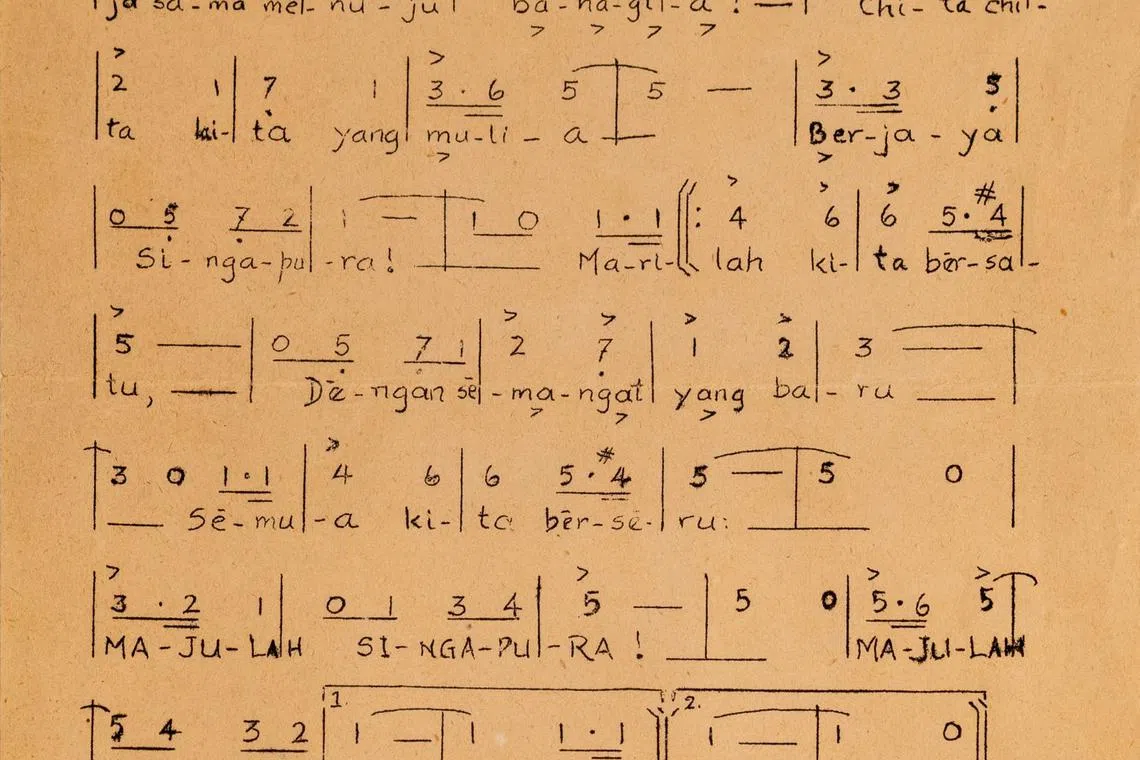 ja sa-ma mel-nu-ju ba-ha-gii-a! — Chi-ta chit-
2 1 | 7 1 | 3 . 6 5 | 5 — | 3 . 3 5 |
ta kai- ta yang mu-li-a — Ber-ja-ya
0 5 7 2 | 1 — | 1 0 1 . 1 ‖: 4 6 | 6 5 . #4 |
Si-nga-pu-ra! — Ma-ri-lah ki-ta bēr-sa-
5 — | 0 5 7 1 | 2 7 | 1 2 | 3 — |
tu, — Dē-ngan sē-ma-ngat yang ba-ru —
3 0 1 . 1 | 4 6 | 6 5 . #4 | 5 — | 5 0 |
— Sē-mu-a ki-ta bēr-sē-ru: —
3 . 2 1 | 0 1 3 4 | 5 — | 5 0 | 5 . 6 5 |
MA-JU-LAH SI-NGA-PU-RA! — MA-JU-LAH
1. 2.
5 4 3 2 | 1 — | 1 1 . 1 ‖ 1 — | 1 0 ‖